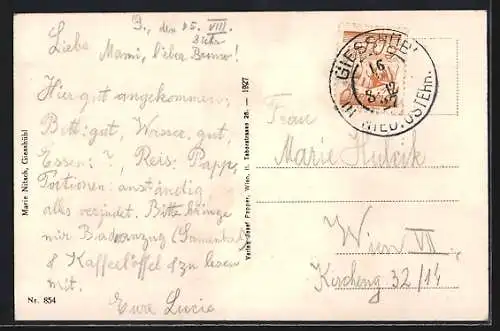 G., den 15. VIII.
Liebe Mami, lieber
Hier gut angekommen,
Bett: gut, Wasser: gut,
Essen: ?, Reis: Papp,
Portionen: anständig
alles Bitte bringe
mir Badeanzug
8 Kaffeelöffel & zu lesen
mit.
Eure Lucia
Marie Nitsch, Giesshübl
Nr. 854
Verlag Josef Popper, Wien, II. Taborstrasse 26. — 1927
GIESSHÜBL
16
8 12
27
NIED.ÖSTERR.
Frau
Marie
Wien VII.
Kircheng 32/14